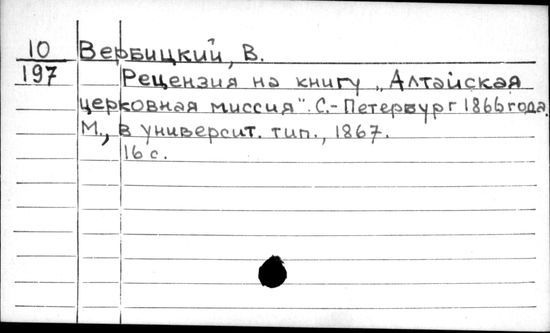 10 Вербицкий, В.
197 Рецензия на книгу „Алтайская
церковная миссия". С.-Петербург 1866 года.
М., в университ. тип., 1867.
16 с.